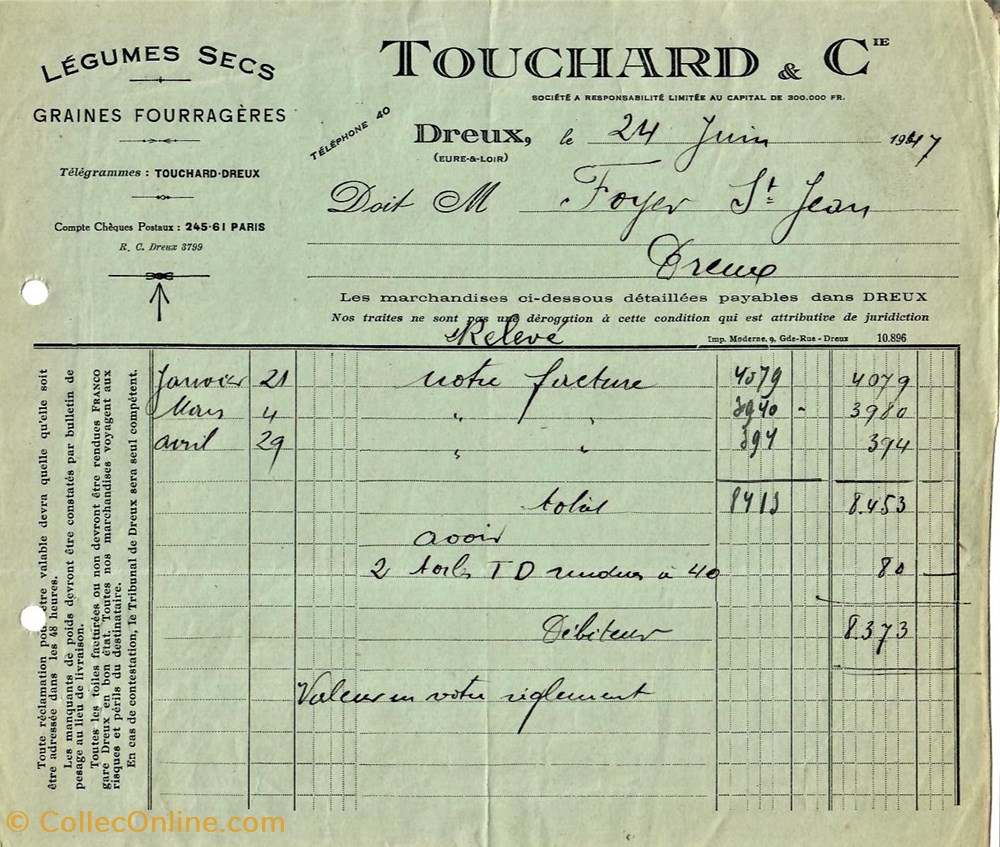 LÉGUMES SECS
GRAINES FOURRAGÈRES
Télégrammes : TOUCHARD-DREUX
Compte Chèques Postaux : 245-61 PARIS
R. C. Dreux 3799
TOUCHARD & CIE
SOCIÉTÉ A RESPONSABILITÉ LIMITÉE AU CAPITAL DE 300.000 FR.
TÉLÉPHONE 40
Dreux, le 24 Juin 1947
(EURE-&-LOIR)
Doit M Foyer St Jean
Dreux
Les marchandises ci-dessous détaillées payables dans DREUX
Nos traites ne sont pas une dérogation à cette condition qui est attributive de juridiction
Relevé
Imp. Moderne, 9, Gde-Rue - Dreux 10.896
Janvier 21 notre facture 4079 4079
Mars 4 " " 3940 - 3980
avril 29 " " 394 394
total 8413 8.453
avoir
2 toiles T D rendues à 40 80
Débiteur 8.373
Valeur en votre règlement
Toute réclamation pour être valable devra quelle qu'elle soit
être adressée dans les 48 heures.
Les manquants de poids devront être constatés par bulletin de
pesage au lieu de livraison.
Toutes les toiles facturées ou non devront être rendues FRANCO
gare Dreux en bon état. Toutes nos marchandises voyagent aux
risques et périls du destinataire.
En cas de contestation, le Tribunal de Dreux sera seul compétent.
© CollecOnline.com